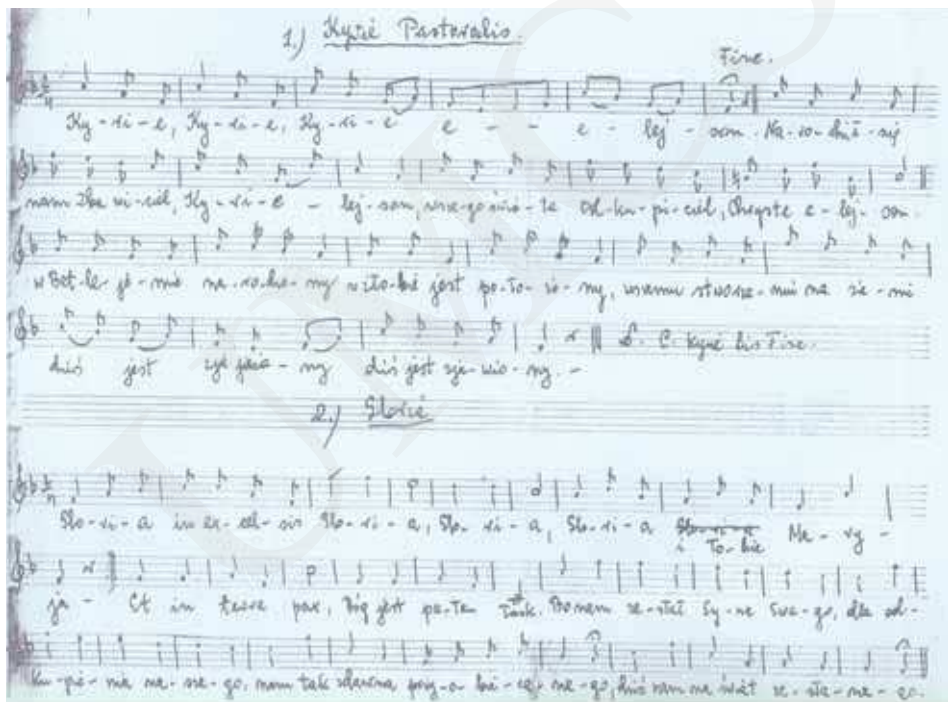 1.) Kyrie Pastoralis.
Fine.
Ky-ri-e, Ky-ri-e, Ky-ri-e e - - e - lej - son. Na-ro-dził-się
nam Zba wi-ciel, Ky-ri-e - lej-son, wszego świa-ta Od-ku-pi-ciel, Chryste e-lej-son.
w Bet-le-je-mie na-ro-dzo-ny w żło-bie jest po-ło-żo-ny, wszemu stworze-niu na zie-mi
dziś jest zja wio-ny dziś jest zja-wio-ny - D. C. Kyrie bis Fine.
2.) Gloria
Glo-ri-a in ex-cel-sis Glo-ri-a, Glo-ri-a, Glo-ri-a i To-bie Ma-ry-
ja - Et in terra pax, Bóg jest pa-ten Bo nam ze-słał Sy-na Swe-go, dla od-
ku-pie-nia na-sze-go, nam tak przy-o bie-ca-ne-go, dziś nam na świat ze-sła-ne-go.